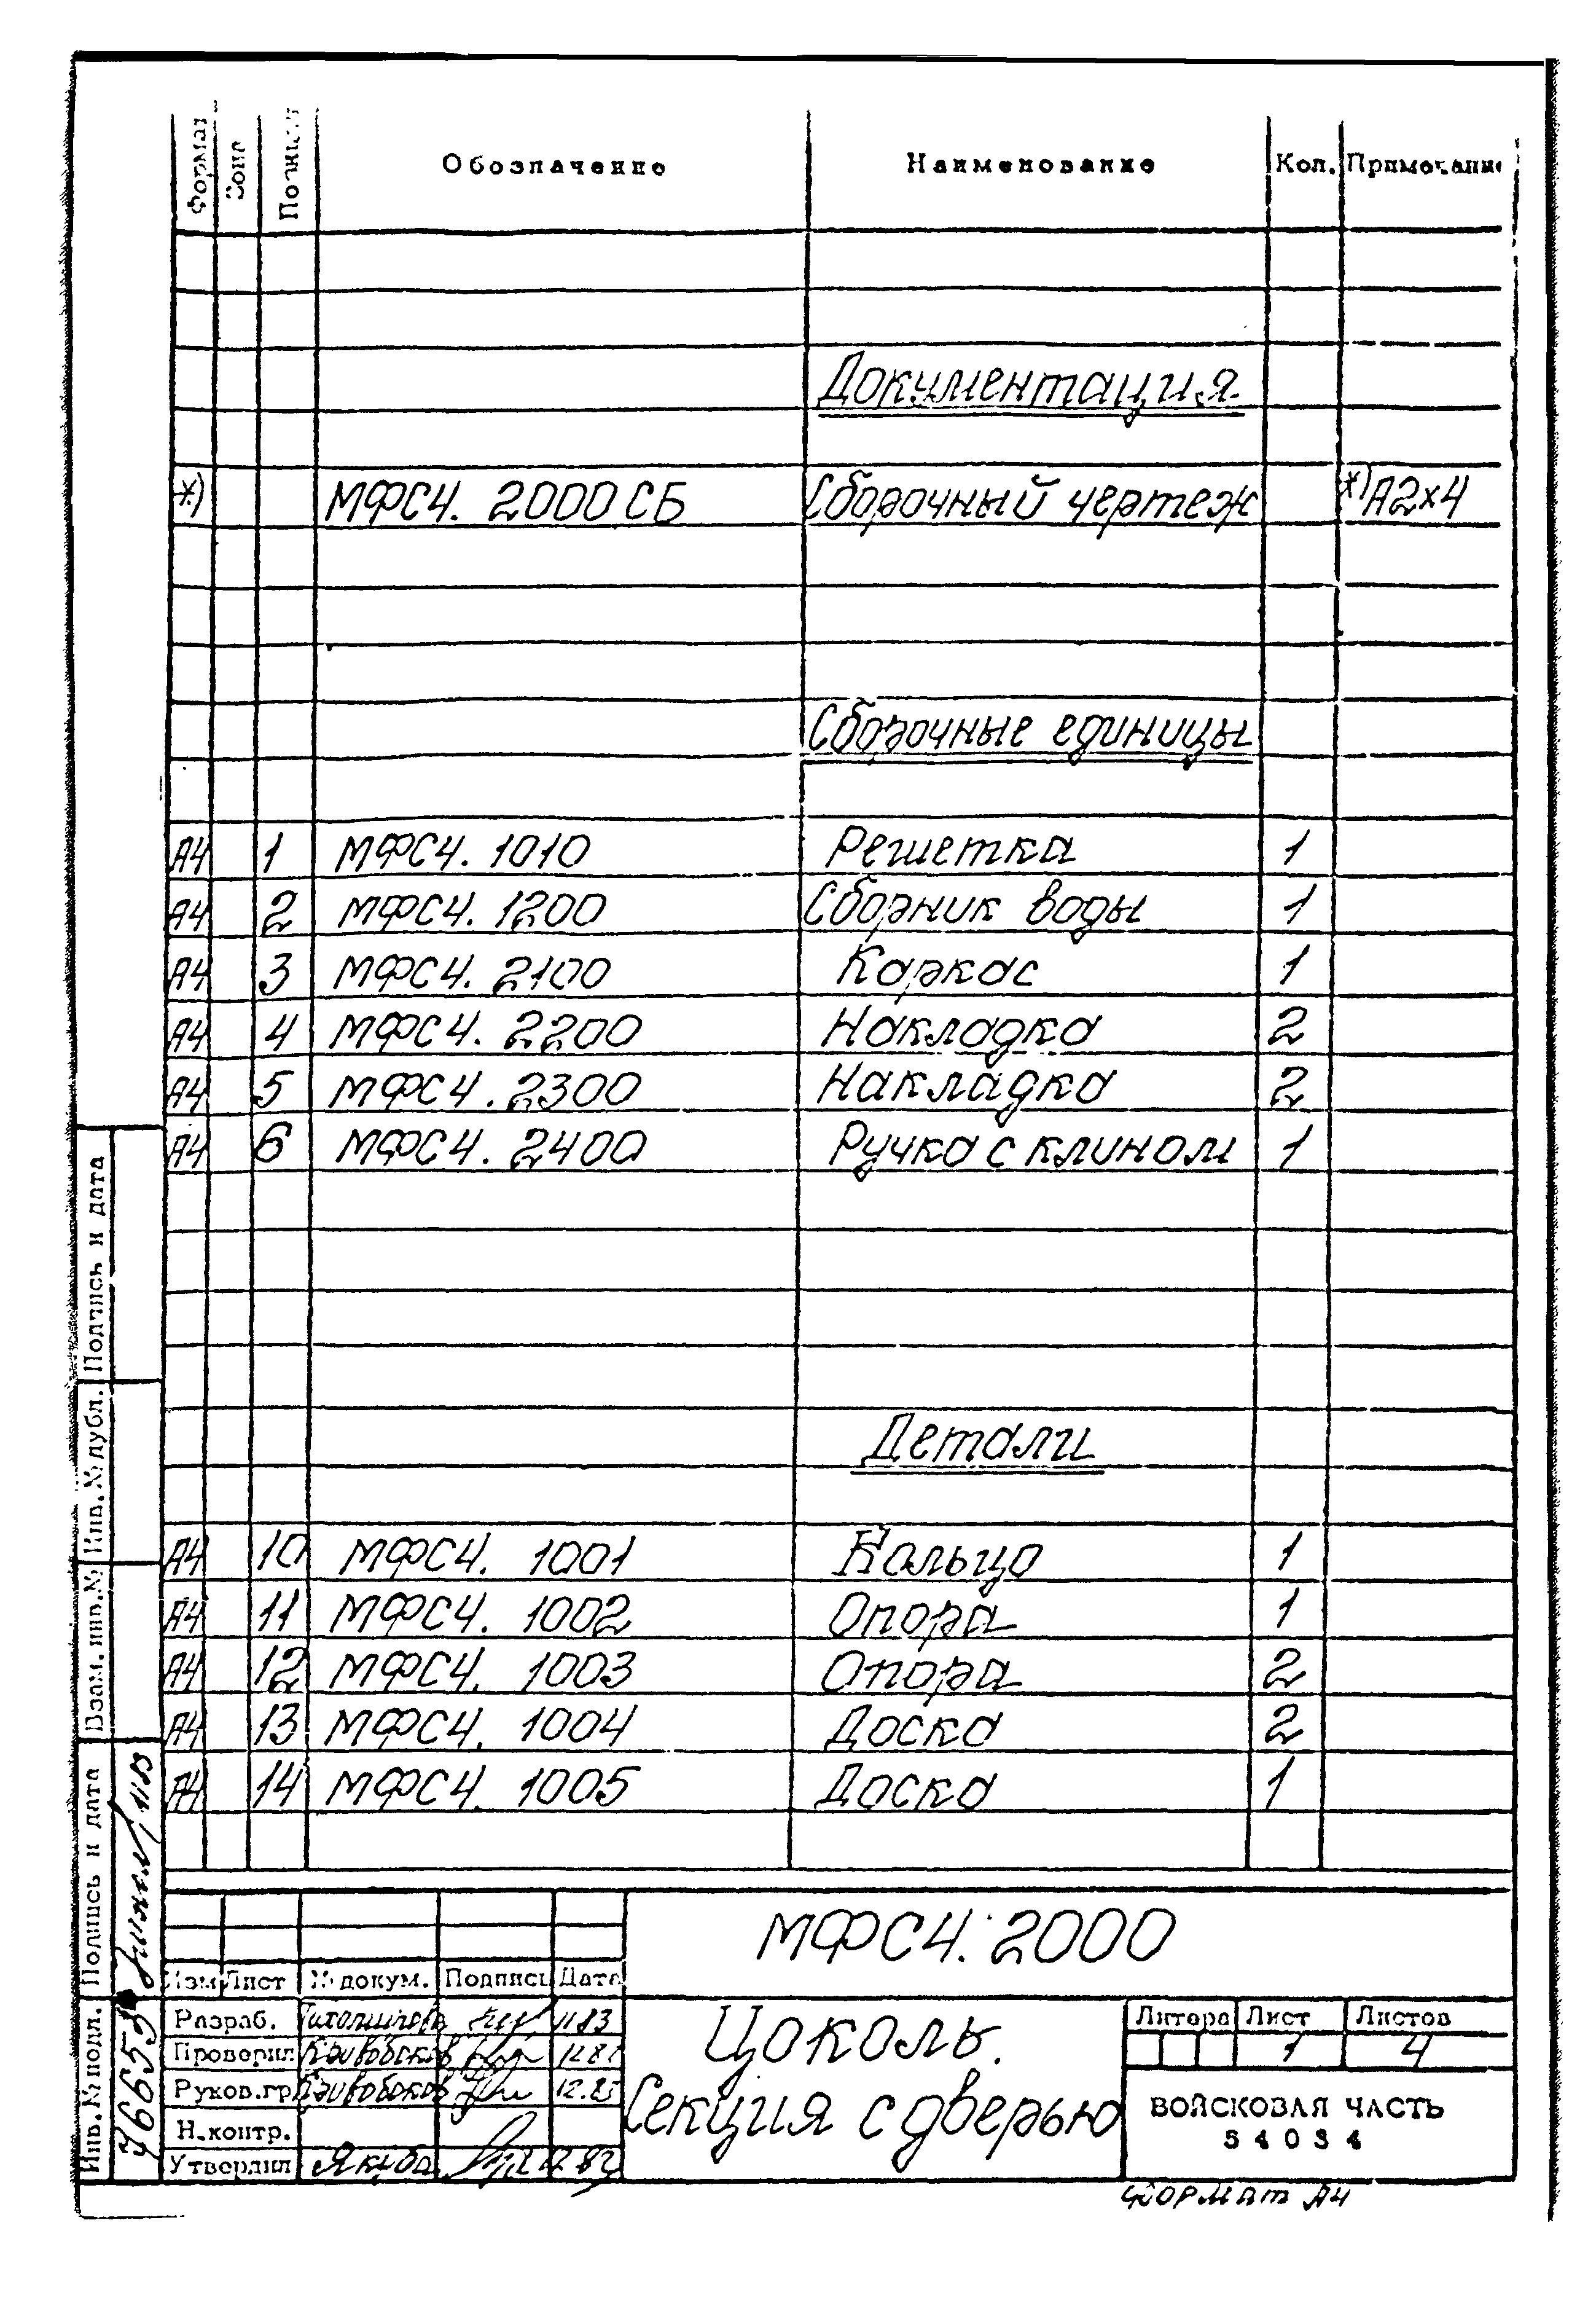 Формат Зона Обозначение Наименование Кол. Примечание
Документация
*) МФС4. 2000 СБ Сборочный чертеж *) А2х4
Сборочные единицы
А4 1 МФС4. 1010 Решетка 1
А4 2 МФС4. 1200 Сборник воды 1
А4 3 МФС4. 2100 Каркас 1
А4 4 МФС4. 2200 Накладка 2
А4 5 МФС4. 2300 Накладка 2
А4 6 МФС4. 2400 Ручка с клином 1
Детали
А4 10 МФС4. 1001 Кольцо 1
А4 11 МФС4. 1002 Опора 1
А4 12 МФС4. 1003 Опора 2
А4 13 МФС4. 1004 Доска 2
А4 14 МФС4. 1005 Доска 1
Подпись и дата
Инв. № дубл.
Взам. инв. №
Подпись и дата
Инв. № подл.
МФС4. 2000
Изм Лист № докум. Подпись Дата
Разраб. 11.83
Проверил
Руков.гр.
Н.контр.
Утвердил Якуба
Цоколь.
Секция с дверью
Литера Лист Листов
1 4
ВОЙСКОВАЯ ЧАСТЬ
54034
Формат А4